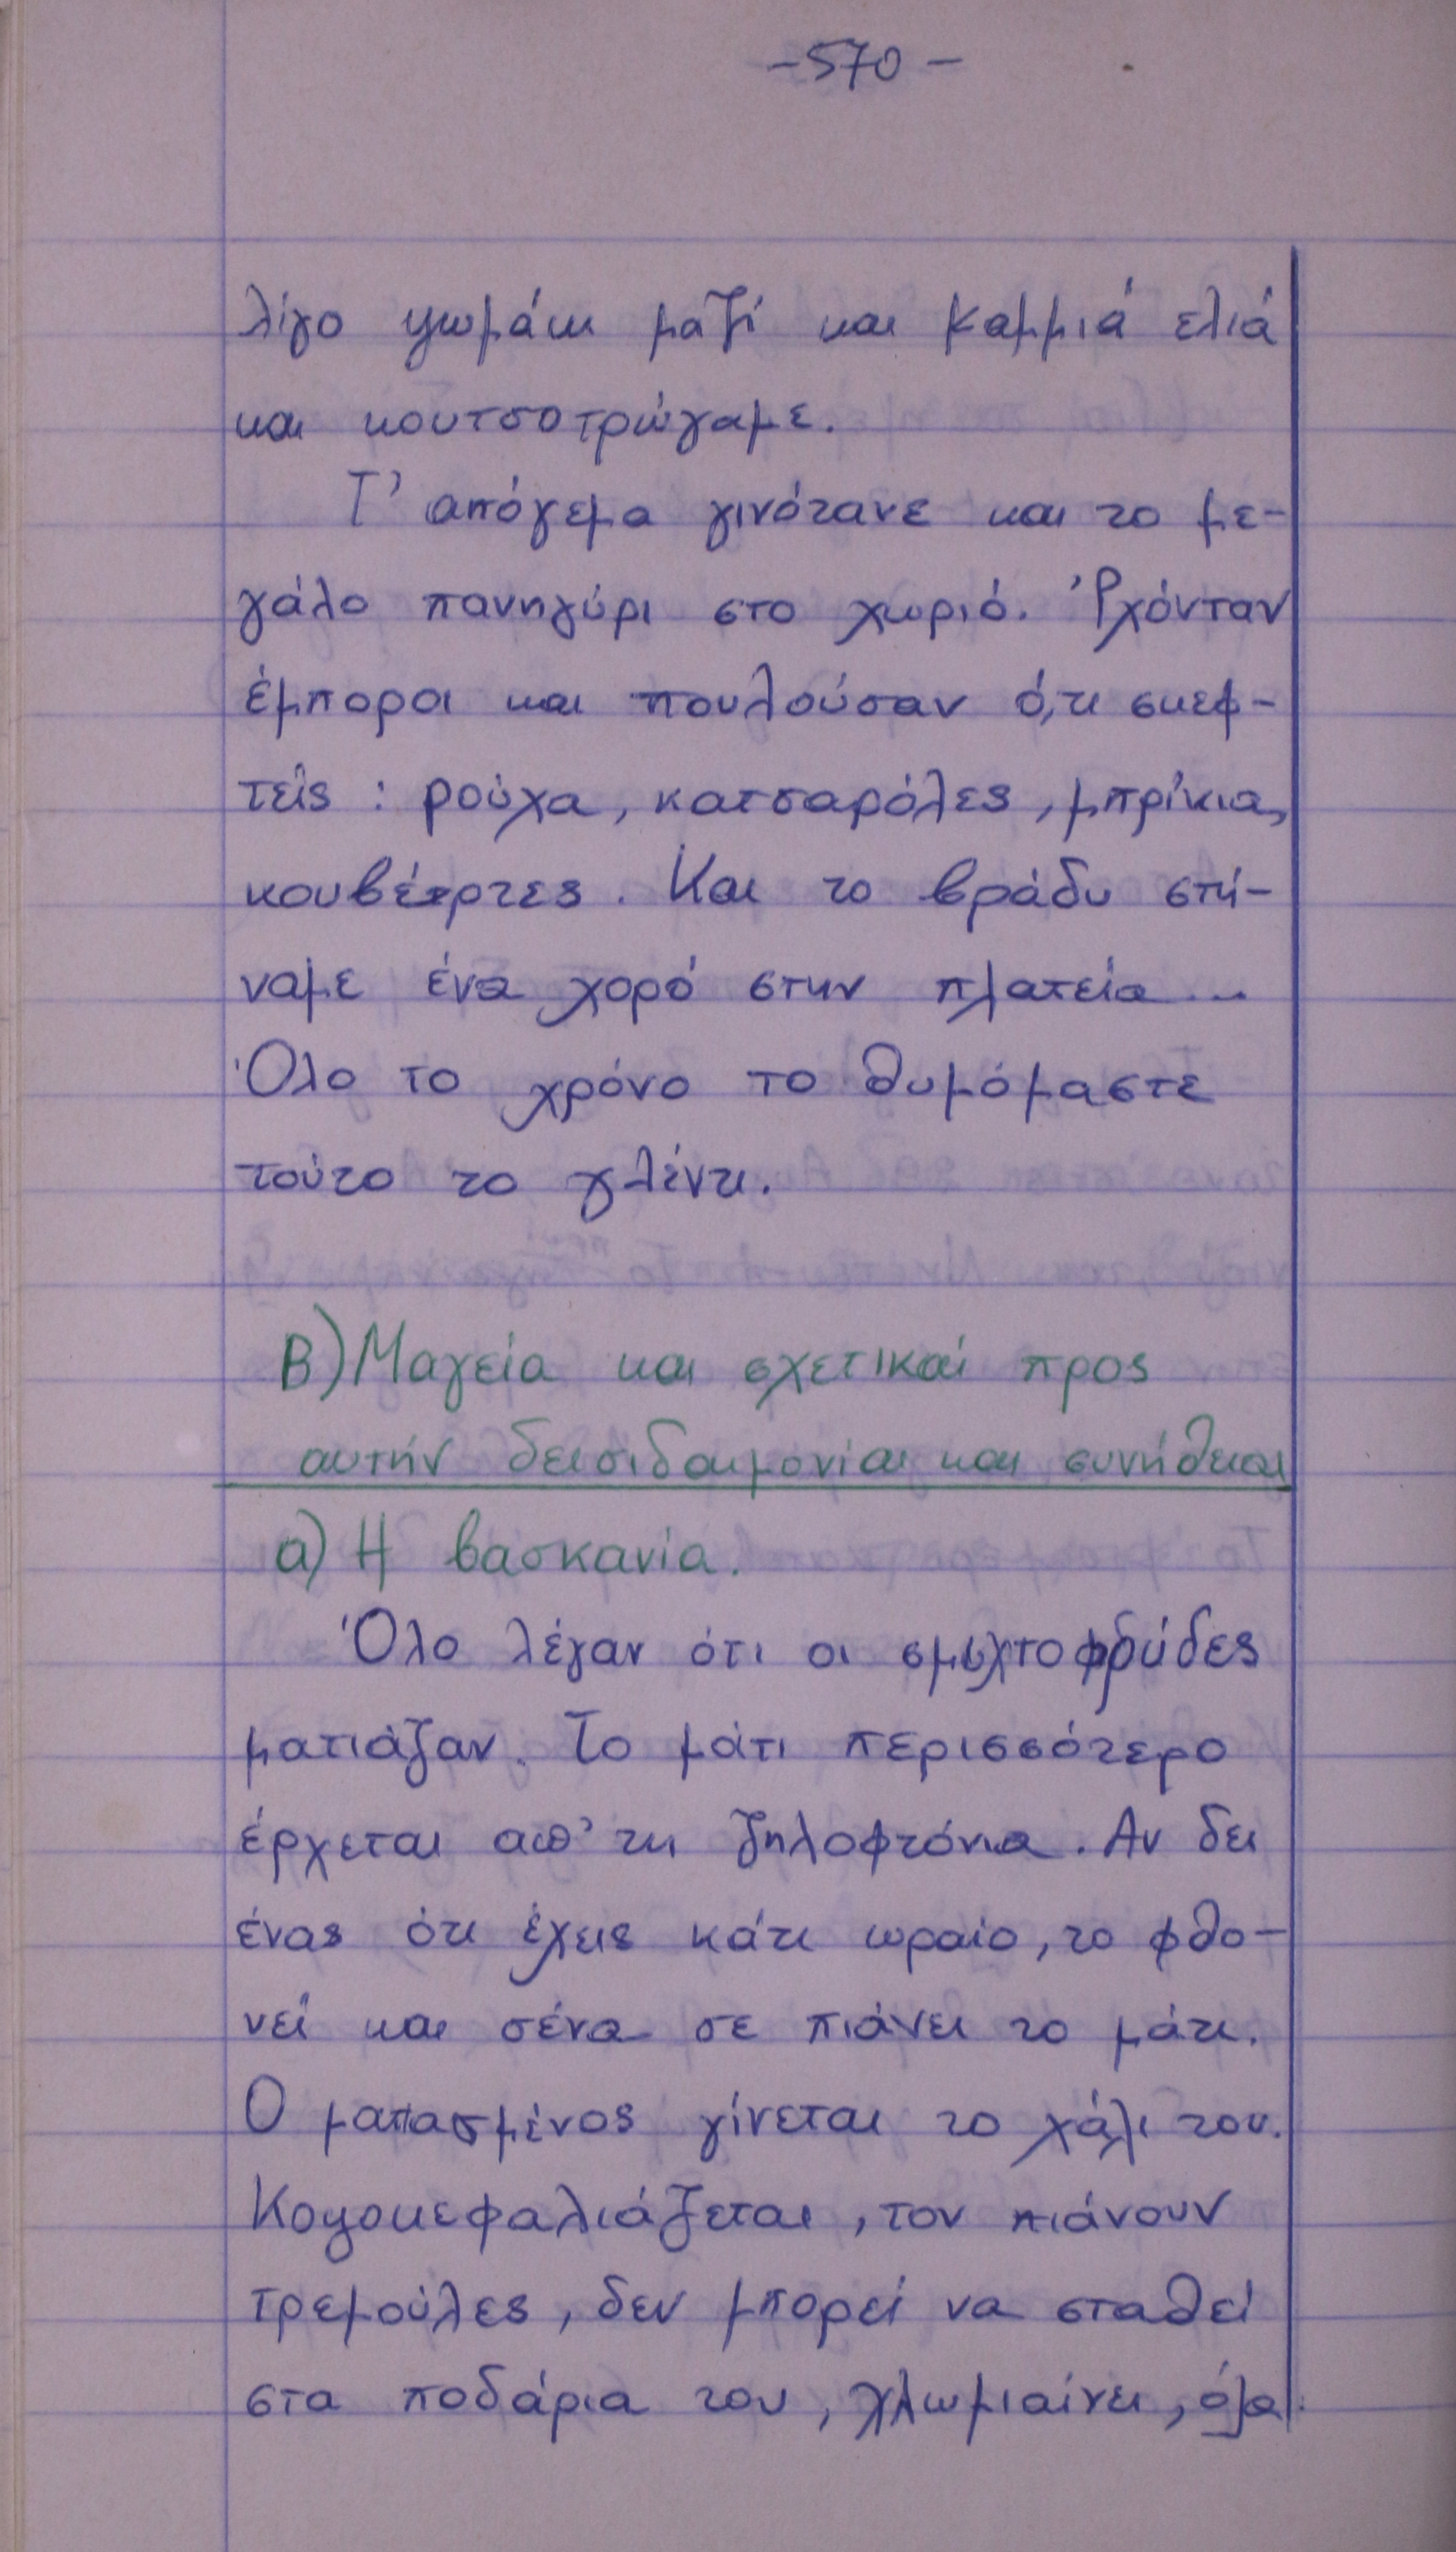 -570-
λίγο ψωμάκι μαζί και καμμιά ελιά
και κουτσοτρώγαμε.
Τ' απόγεμα γινότανε και το με-
γάλο πανηγύρι στο χωριό. 'Ρχόνταν
έμποροι και πουλούσαν ό,τι σκεφ-
τείς : ρούχα, κατσαρόλες, μπρίκια,
κουβέρτες. Και το βράδυ στή-
ναμε ένα χορό στην πλατεία...
Όλο το χρόνο το θυμόμαστε
τούτο το γλέντι.
Β) Μαγεία και σχετικαί προς
αυτήν δεισιδαιμονίαι και συνήθειαι
α) Η βασκανία.
Όλο λέγαν ότι οι σμιχτοφρύδες
ματιάζαν. Το μάτι περισσότερο
έρχεται απ' τη ζηλοφτόνια. Αν δει
ένας ότι έχεις κάτι ωραίο, το φθο-
νεί και σένα σε πιάνει το μάτι.
Ο ματιασμένος γίνεται το χάλι του.
Κοψοκεφαλιάζεται, τον πιάνουν
τρεμούλες, δεν μπορεί να σταθεί
στα ποδάρια του, χλωμιαίνει, όλα